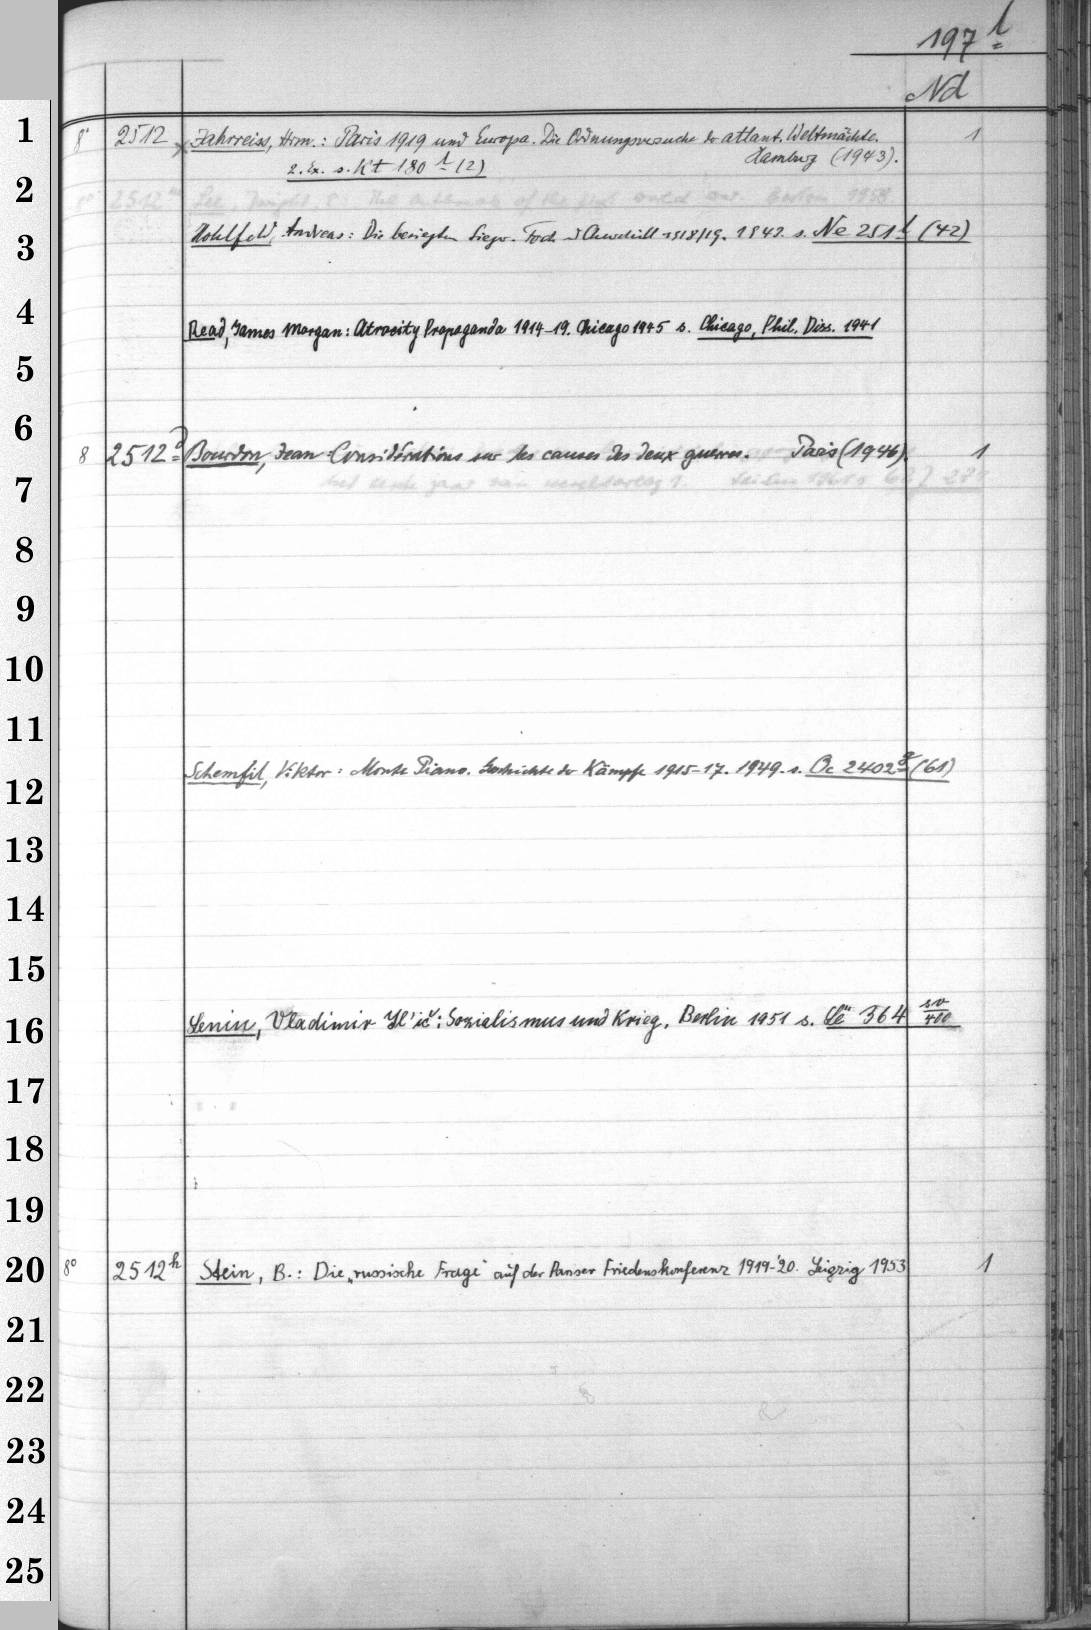 197 l
Nd
1
8° 2512 x Jahrreiss, Hrm.: Paris 1919 und Europa. Die Ordnungsversuche der atlant. Weltmächte. 1
Hamburg (1943).
2. Ex. s. Kt 180 l (2)
2
8° 2512 Lee, Dwight, E: The outbreak of the first world war. Boston 1958
3
Hohlfeld, Andreas: Die besiegten Sieger. Foch u Churchill 1918/19. 1942. s. Ne 251 l (42)
4
Read, James Morgan: Atrocity Propaganda 1914-19. Chicago 1945 s. Chicago, Phil. Diss. 1941
5
6
8 2512 d Bourdon, Jean: Considérations sur les causes des deux guerres. Paris (1946). 1
7
8
9
10
11
12
Schemfil, Viktor: Monte Piano. Geschichte der Kämpfe 1915-17. 1949. s. Oc 2402 g (61)
13
14
15
16
Lenin, Vladimir Il'ič: Sozialismus und Krieg. Berlin 1951 s. 364 sv/400
17
18
19
20
8° 2512 h Stein, B.: Die „russische Frage" auf der Pariser Friedenskonferenz 1919-'20. Leipzig 1953 1
21
22
23
24
25